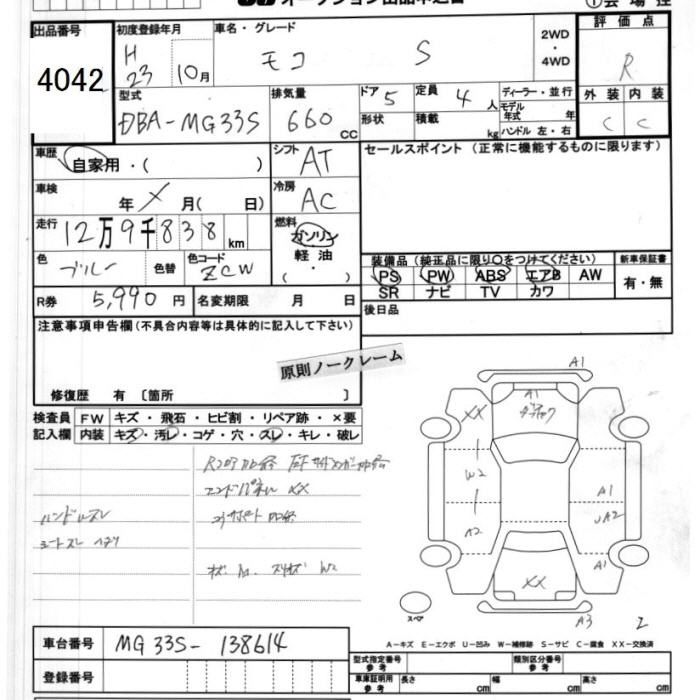 出品番号
4042
初度登録年月
H 23 10月
車名・グレード
モコ S
2WD
・
4WD
評価点
R
外装 内装
C C
型式
DBA-MG33S
排気量
660 cc
ドア 5
形状
定員 4 人
積載 kg
ディーラー・並行
モデル年式 年
ハンドル 左・右
車歴
自家用・( )
シフト AT
セールスポイント (正常に機能するものに限ります)
車検
年 X 月( 日)
冷房 AC
走行
12万9千838 km
燃料
ガソリン
軽油
( ・ )
色 ブルー
色替
色コード ZCW
装備品 (純正品に限り○をつけてください)
PS PW ABS エアB AW
SR ナビ TV カワ
新車保証書
有・無
R券 5,990 円
名変期限 月 日
後日品
注意事項申告欄 (不具合内容等は具体的に記入して下さい)
原則ノークレーム
修復歴 有 〔箇所 〕
検査員記入欄
FW キズ・飛石・ヒビ割・リペア跡・×要
内装 キズ・汚レ・コゲ・穴・スレ・キレ・破レ
エンドパネル XX
ハンドルスレ
シートスレ ヘタリ
W2
A1
A1
XX
W2
A2
A1
A1
XX
A3
スペア
A-キズ E-エクボ U-凹み W-補修跡 S-サビ C-腐食 XX-交換済
車台番号 MG33S-138614
登録番号
型式指定番号 参考
類別区分番号 参考
車庫証明用 参考
長さ cm
幅 cm
高さ cm